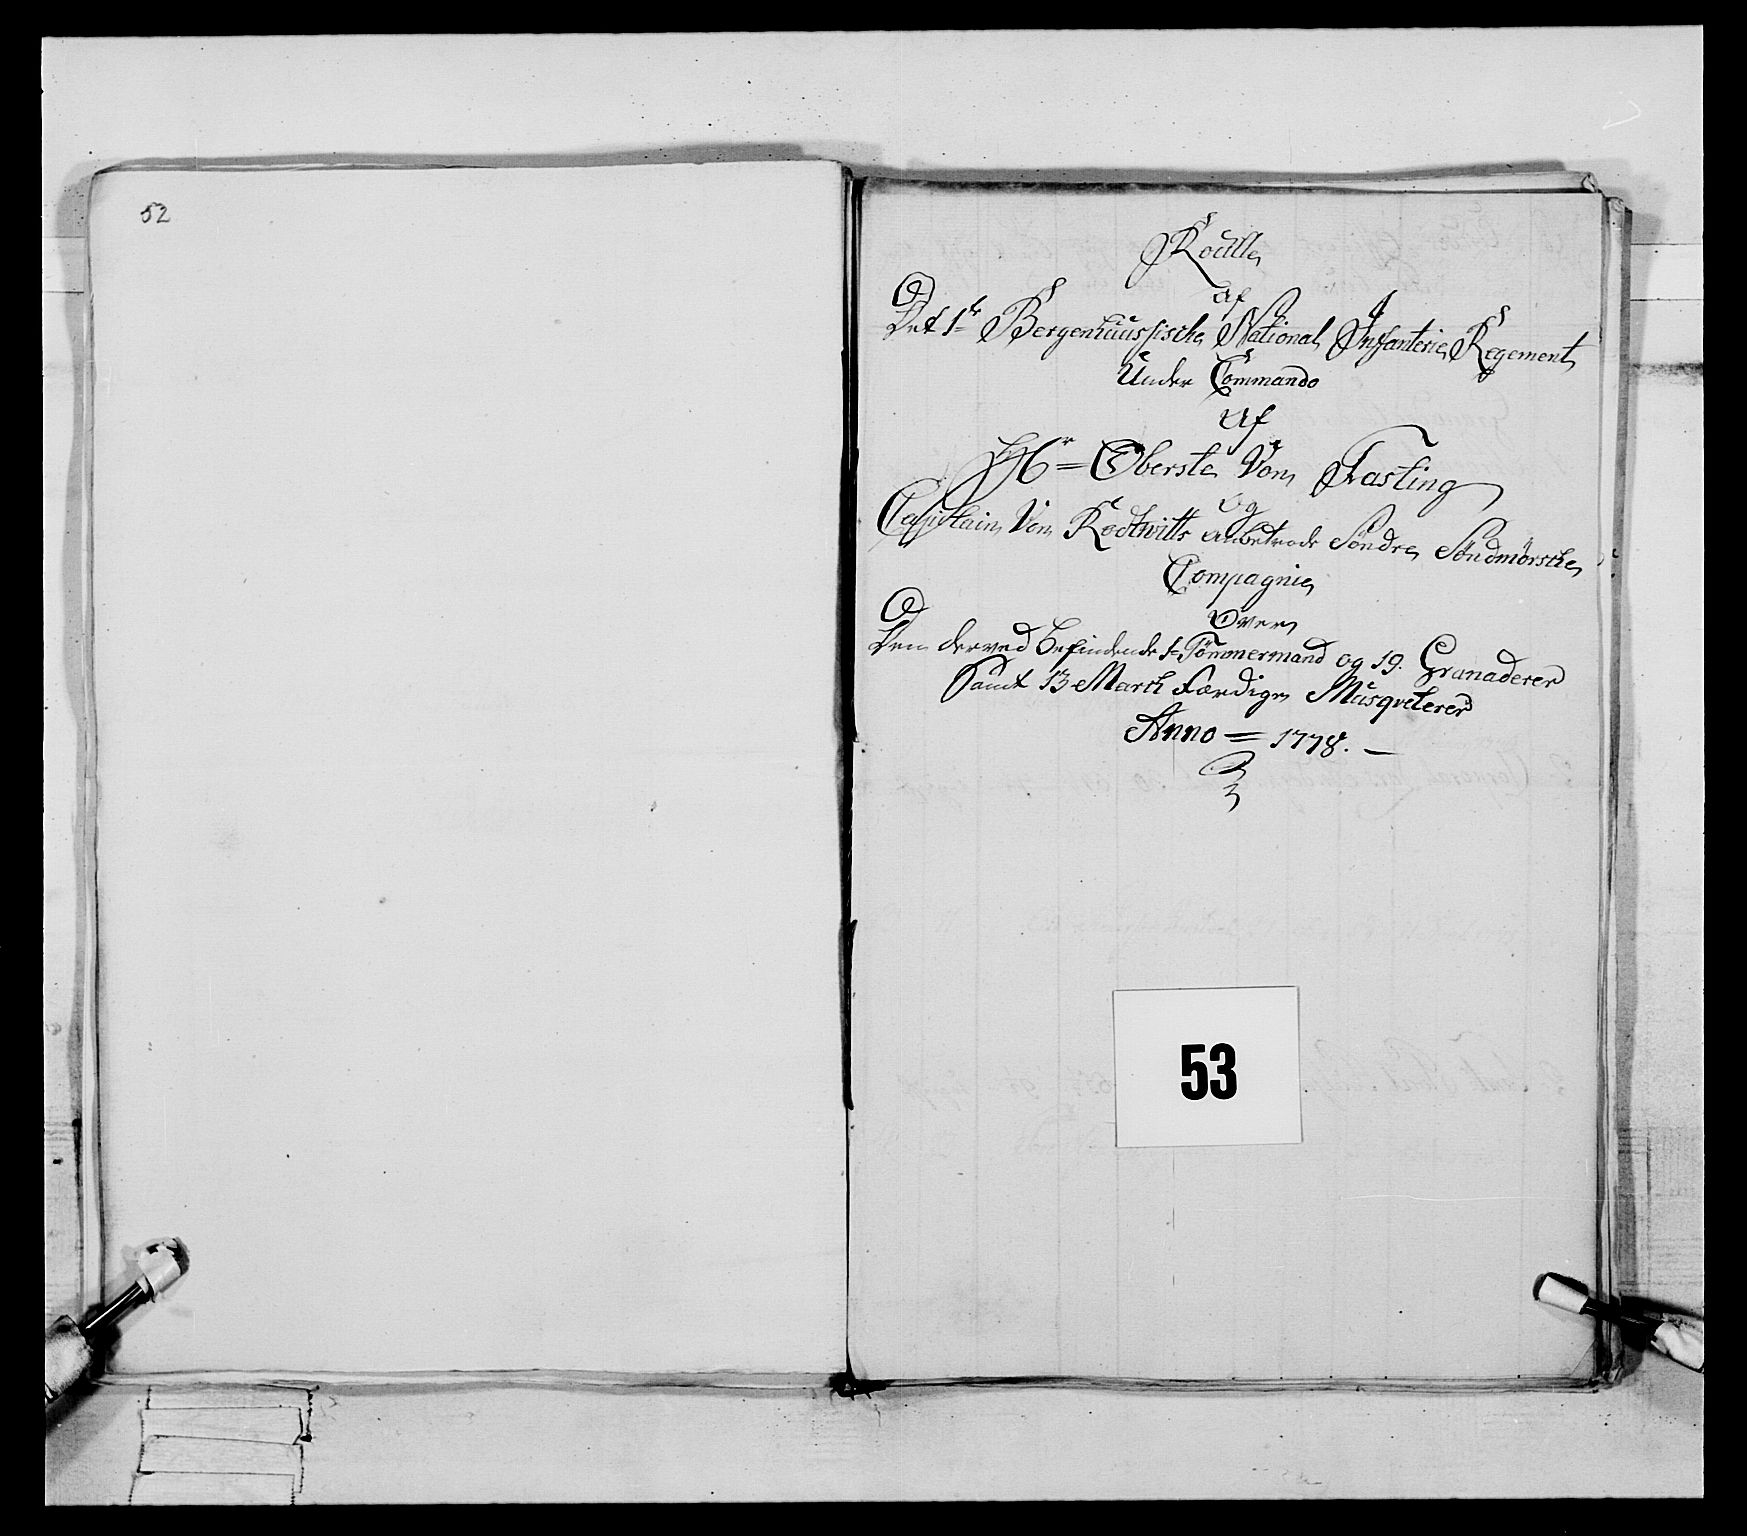 52
Roulle
af
Det 1te Bergenhuussische National Infanterie Regement
Under Commando
Af
Hr= Oberste Von Fasting
og
Capitain Von Rodtwitts anbetroede Søndre Søndmørsche
Compagnie
Over
Den derved befindende 1= Tømmermand og 19. Granaderer
Samt 13 March færdige Musqveterer
Anno = 1778. —
53